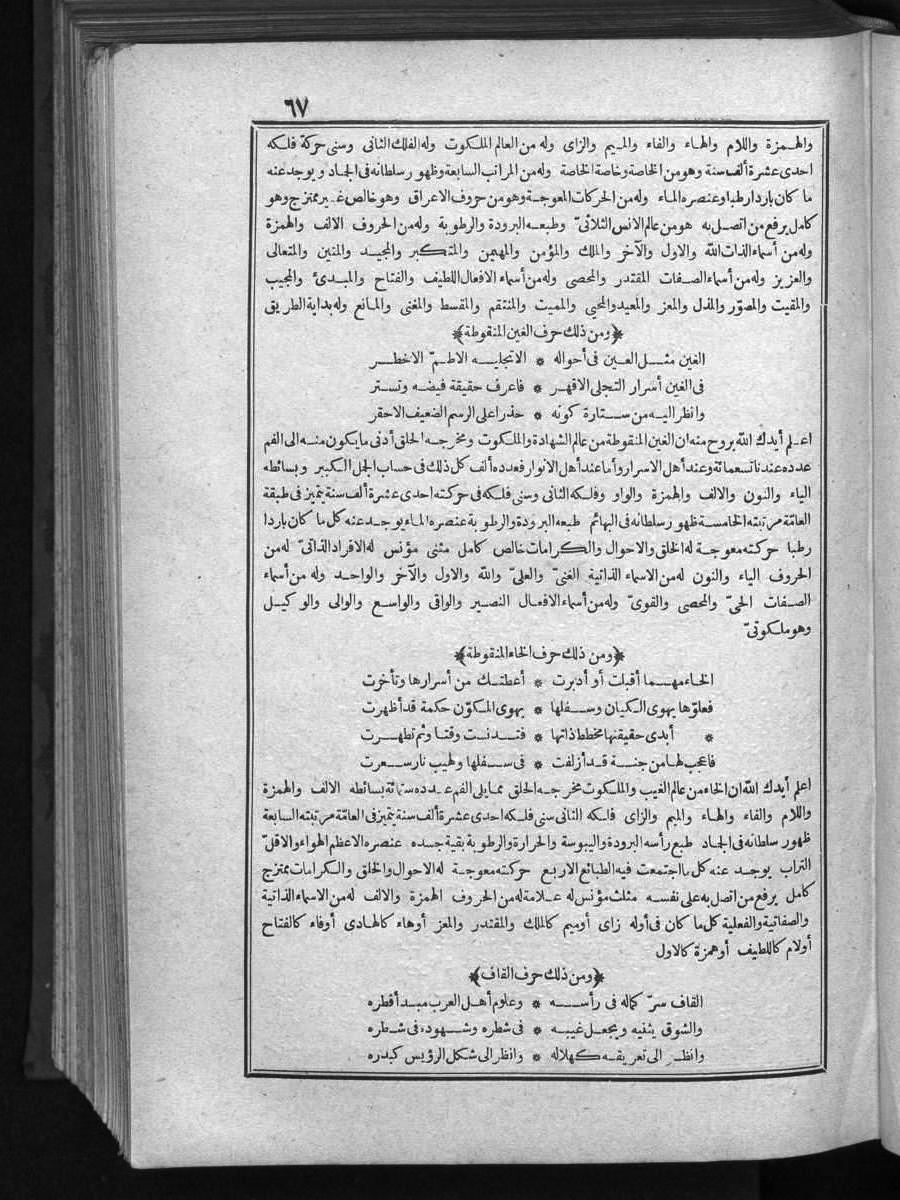 ٦٧
والهمزة واللام والهاء والفاء والميم والزاى وله من العالم الملكوت وله الفلك الثانى وسنى حركة فلكه
احدى عشرة ألف سنة وهو من الخاصة وخاصة الخاصة وله من المراتب السابعة وظهور سلطانه فى الجماد ويوجد عنه
ما كان باردا رطبا وعنصره الماء وله من الحركات المعوجة وهو من حروف الاعراق وهو خالص غير ممتزج وهو
كامل يرفع من اتصل به هو من عالم الانس الثلاثىّ وطبعه البرودة والرطوبة وله من الحروف الالف والهمزة
وله من أسماء الذات الله والاول والآخر والملك والمؤمن والمهيمن والمتكبر والمجيد والمتين والمتعالى
والعزيز وله من أسماء الصفات المقتدر والمحصى وله من أسماء الافعال اللطيف والفتاح والمبدئ والمجيب
والمقيت والمصوّر والمذل والمعز والمعيد والمحيى والمميت والمنتقم والمقسط والمغنى والمانع وله بداية الطريق
﴿ومن ذلك حرف الغين المنقوطة﴾
الغين مثل العين فى أحواله * الا تجليه الاطمّ الاخطر
فى الغين أسرار التجلى الاقهر * فاعرف حقيقة فيضه وتستر
وانظر اليه من ستارة كونه * حذرا على الرسم الضعيف الاحقر
اعلم أيدك الله بروح منه ان الغين المنقوطة من عالم الشهادة والملكوت ومخرجه الحلق أدنى ما يكون منه الى الفم
عدده عندنا تسعمائة وعند أهل الاسرار وأما عند أهل الانوار فعدده ألف كل ذلك فى حساب الجمل الكبير وبسائطه
الياء والنون والالف والهمزة والواو وفلكه الثانى وسنى فلكه فى حركته احدى عشرة ألف سنة يتميز فى طبقة
العامّة مرتبته الخامسة ظهور سلطانه فى البهائم طبعه البرودة والرطوبة عنصره الماء يوجد عنه كل ما كان باردا
رطبا حركته معوجة له الخلق والاحوال والكرامات خالص كامل مثنى مؤنس له الافراد الذاتىّ له من
الحروف الياء والنون له من الاسماء الذاتية الغنىّ والعلىّ والله والاول والآخر والواحد وله من أسماء
الصفات الحىّ والمحصى والقوىّ وله من أسماء الافعال النصير والواقى والواسع والوالى والوكيل
وهو ملكوتىّ
﴿ومن ذلك حرف الخاء المنقوطة﴾
الخاء مهما أقبلت أو أدبرت * أعطتك من أسرارها وتأخرت
فعلوّها يهوى الكيان وسفلها * يهوى المكوّن حكمة قد أظهرت
* أبدى حقيقتها مخطط ذاتها * فتدنست وقتا وثم تطهرت
فاعجب لها من جنة قد أزلفت * فى سفلها ولهيب نار سعرت
اعلم أيدك الله ان الخاء من عالم الغيب والملكوت مخرجه الحلق مما يلى الفم عدده ستمائة بسائطه الالف والهمزة
واللام والفاء والهاء والميم والزاى فلكه الثانى سنى فلكه احدى عشرة ألف سنة يتميز فى العامّة مرتبته السابعة
ظهور سلطانه فى الجماد طبع رأسه البرودة واليبوسة والحرارة والرطوبة بقية جسده عنصره الاعظم الهواء والاقلّ
التراب يوجد عنه كل ما اجتمعت فيه الطبائع الاربع حركته معوجة له الاحوال والخلق والكرامات ممتزج
كامل يرفع من اتصل به على نفسه مثلث مؤنس له علامة له من الحروف الهمزة والالف له من الاسماء الذاتية
والصفاتية والفعلية كل ما كان فى أوله زاى أو ميم كالملك والمقتدر والمعز أو هاء كالهادى أو فاء كالفتاح
أو لام كاللطيف أو همزة كالاول
﴿ومن ذلك حرف القاف﴾
القاف سرّ كماله فى رأسه * وعلوم أهل العرب مبدأ قطره
والشوق يثنيه ويجعل غيبه * فى شطره وشهوده فى شطره
وانظر الى تعريقه كهلاله * وانظر الى شكل الرؤيس كبدره